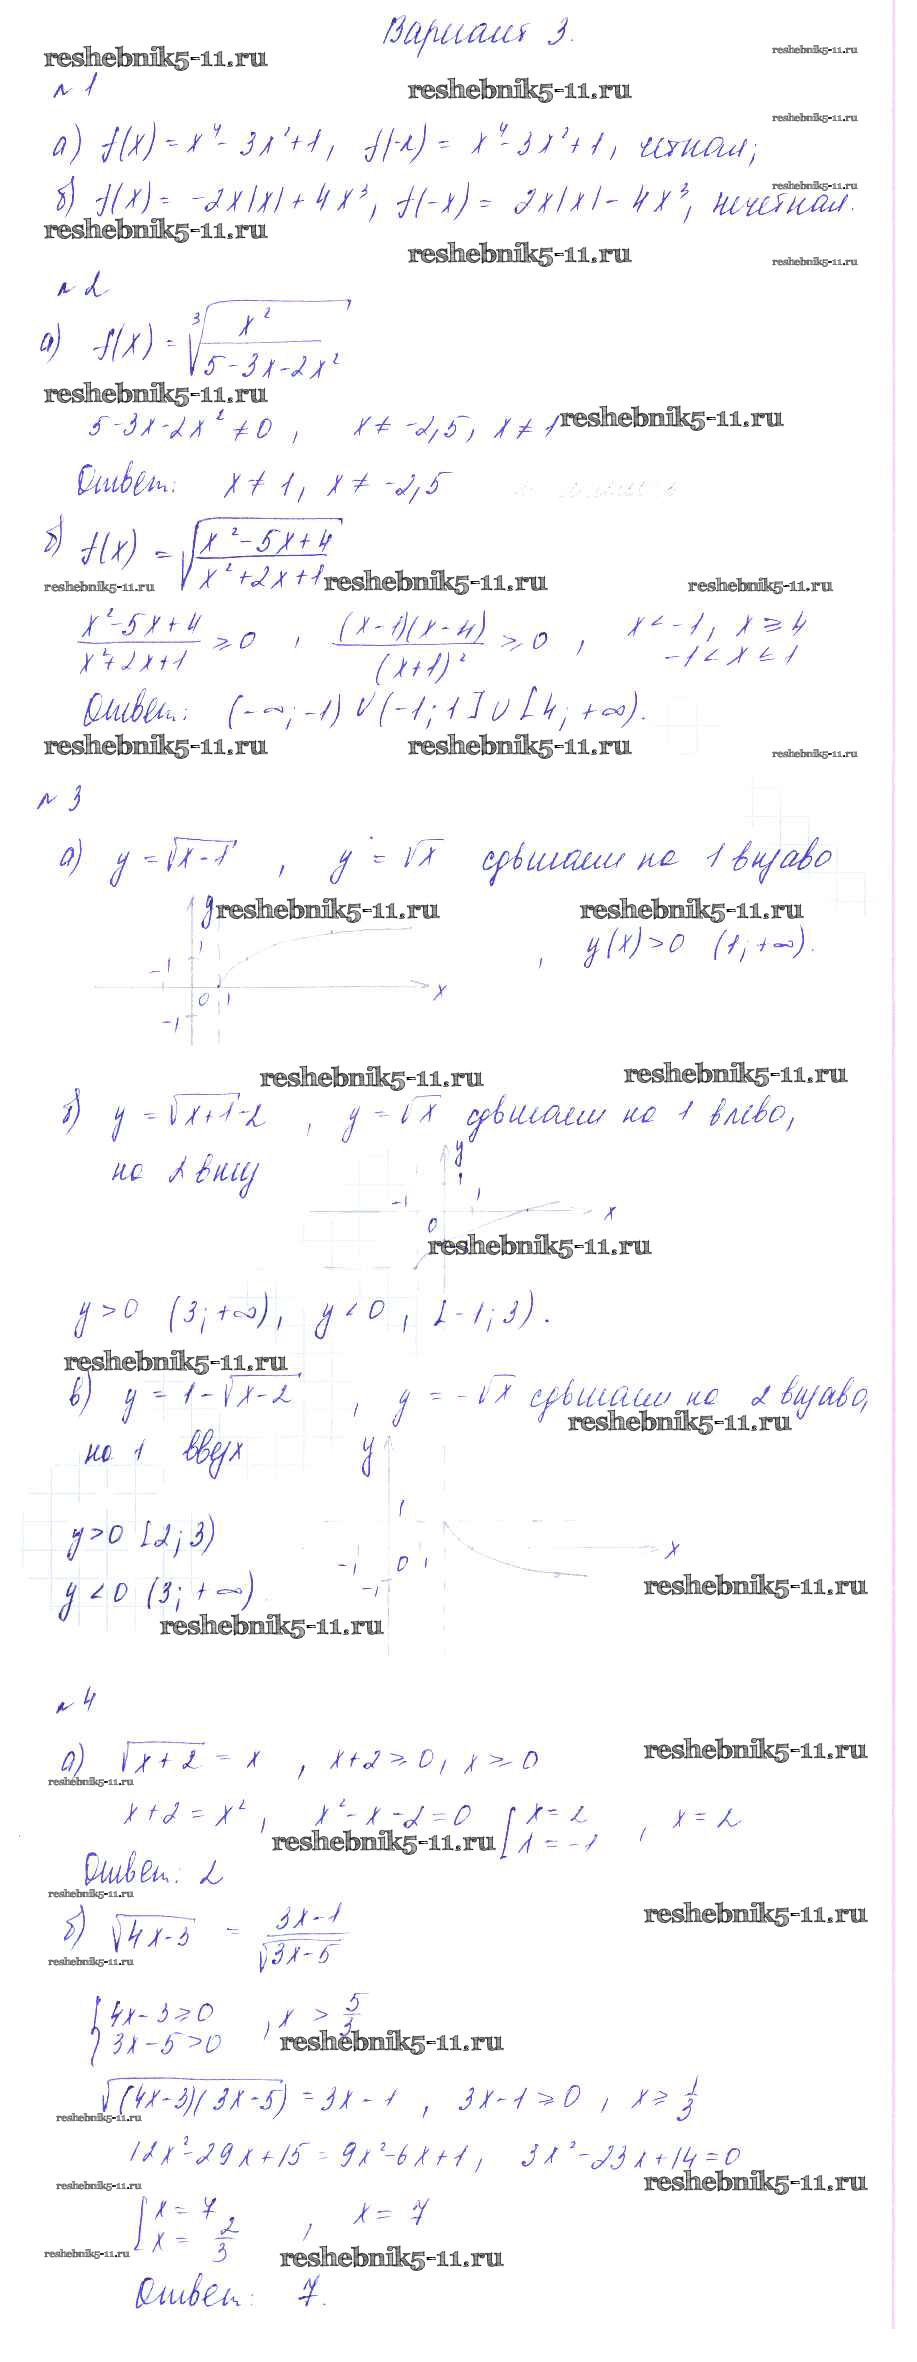 Вариант 3.
reshebnik5-11.ru
reshebnik5-11.ru
№ 1
reshebnik5-11.ru
reshebnik5-11.ru
а) f(x) = x⁴ - 3x² + 1, f(-x) = x⁴ - 3x² + 1, четная;
reshebnik5-11.ru
б) f(x) = -2x|x| + 4x³, f(-x) = 2x|x| - 4x³, нечетная.
reshebnik5-11.ru
reshebnik5-11.ru
reshebnik5-11.ru
№ 2
а) f(x) = ∛(x²/(5-3x-2x²))
reshebnik5-11.ru
reshebnik5-11.ru
5-3x-2x² ≠ 0, x ≠ -2,5, x ≠ 1
Ответ: x ≠ 1, x ≠ -2,5
б) f(x) = √((x²-5x+4)/(x²+2x+1))
reshebnik5-11.ru
reshebnik5-11.ru
reshebnik5-11.ru
(x²-5x+4)/(x²+2x+1) ≥ 0, ((x-1)(x-4))/(x+1)² ≥ 0, x < -1, x ≥ 4
-1 < x ≤ 1
Ответ: (-∞; -1) ∪ (-1; 1] ∪ [4; +∞).
reshebnik5-11.ru
reshebnik5-11.ru
reshebnik5-11.ru
№ 3
а) y = √(x-1), y = √x сдвигаем на 1 вправо
y
reshebnik5-11.ru
reshebnik5-11.ru
, y(x) > 0 (1; +∞).
1
-1
0 1
x
-1
reshebnik5-11.ru
reshebnik5-11.ru
б) y = √(x+1) - 2, y = √x сдвигаем на 1 влево,
на 2 вниз
y
1
-1
1
0
x
reshebnik5-11.ru
y > 0 (3; +∞), y < 0, [-1; 3).
reshebnik5-11.ru
в) y = 1 - √(x-2), y = -√x сдвигаем на 2 вправо,
reshebnik5-11.ru
на 1 вверх
y
1
y > 0 [2; 3)
x
-1 0 1
-1
y < 0 (3; +∞).
reshebnik5-11.ru
reshebnik5-11.ru
№ 4
reshebnik5-11.ru
а) √(x+2) = x, x+2 ≥ 0, x ≥ 0
reshebnik5-11.ru
x+2 = x², x²-x-2=0 [x=2
x=-1, x=2
reshebnik5-11.ru
Ответ: 2
reshebnik5-11.ru
reshebnik5-11.ru
б) √(4x-3) = (3x-1)/√(3x-5)
reshebnik5-11.ru
{4x-3 ≥ 0
3x-5 > 0, x > 5/3
reshebnik5-11.ru
√((4x-3)(3x-5)) = 3x-1, 3x-1 ≥ 0, x ≥ 1/3
reshebnik5-11.ru
12x²-29x+15 = 9x²-6x+1, 3x²-23x+14=0
reshebnik5-11.ru
reshebnik5-11.ru
[x = 7
x = 2/3, x = 7
reshebnik5-11.ru
reshebnik5-11.ru
Ответ: 7.